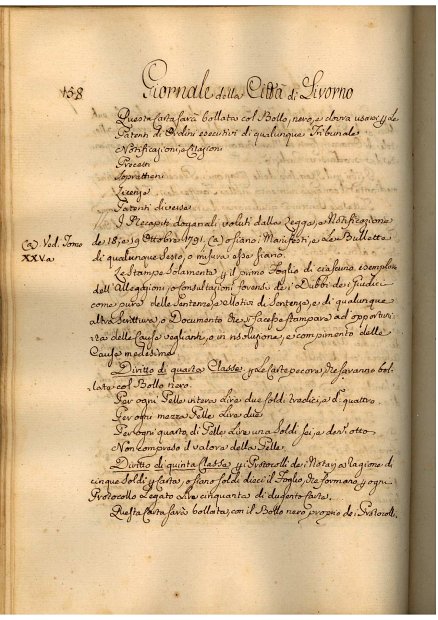 138 Giornale della Città di Livorno
Questa Carta sarà bollata col Bollo, nero, e dovrà usarsi p le
Patenti di Ordini esecutivi di qualunque Tribunale
Notificazioni, e Citazioni
Precetti
Soprattieni
Licenze
Patenti diverse
I Recapiti doganali voluti dalla Legge, e Notificazione
de 18, e 19 Ottobre 1791. (a) o siano i Manifesti, e Le Bullette
di qualunque Sesto, o misura esse siano.
(a) Ved. Tomo
XXV a
Le Stampe Solamente p il primo Foglio di ciascuno esemplare
dell'Allegazioni, o Consultazioni forensi de i Dubbi de i Giudici
come pure delle Sentenze e Motivi di Sentenze, e di qualunque
altra Scrittura, o Documento che si facesse stampare ad opportuni
tà delle Cause veglianti, o in risoluzione, e compimento delle
Cause medesime
Diritto di quarta Classe p Le Carte pecore che saranno bol-
late col Bollo nero.
Per ogni Pelle intera Lire due Soldi tredici, e d. quattro.
Per ogni mezza Pelle Lire due
Per ogni quarto di Pelle Lire una Soldi sei, e den. otto
Non compreso il valore della Pelle.
Diritto di quinta Classe p i Protocolli de i Notari a Ragione di
cinque Soldi p Carta, o siano Soldi dieci il Foglio, che formano p ogni
Protocollo Legato Lire cinquanta di dugento Carte.
Questa Carta sarà bollata, con il Bollo nero proprio de i Protocolli.